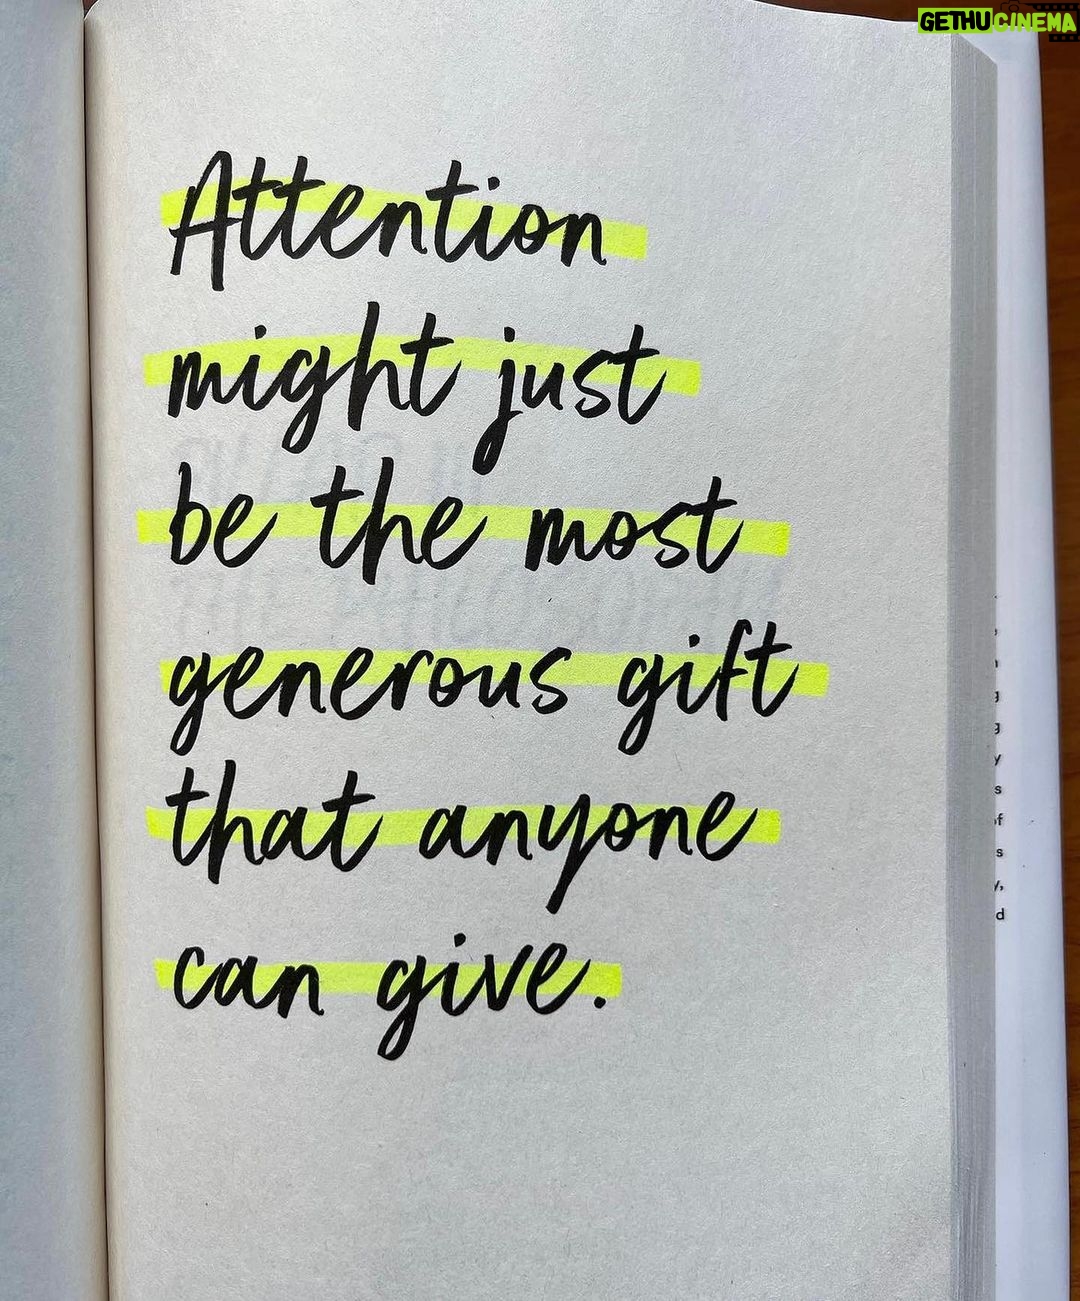 GETHUCINEMA
Attention
might just
be the most
generous gift
that anyone
can give.
y
s
of
s
y,
d